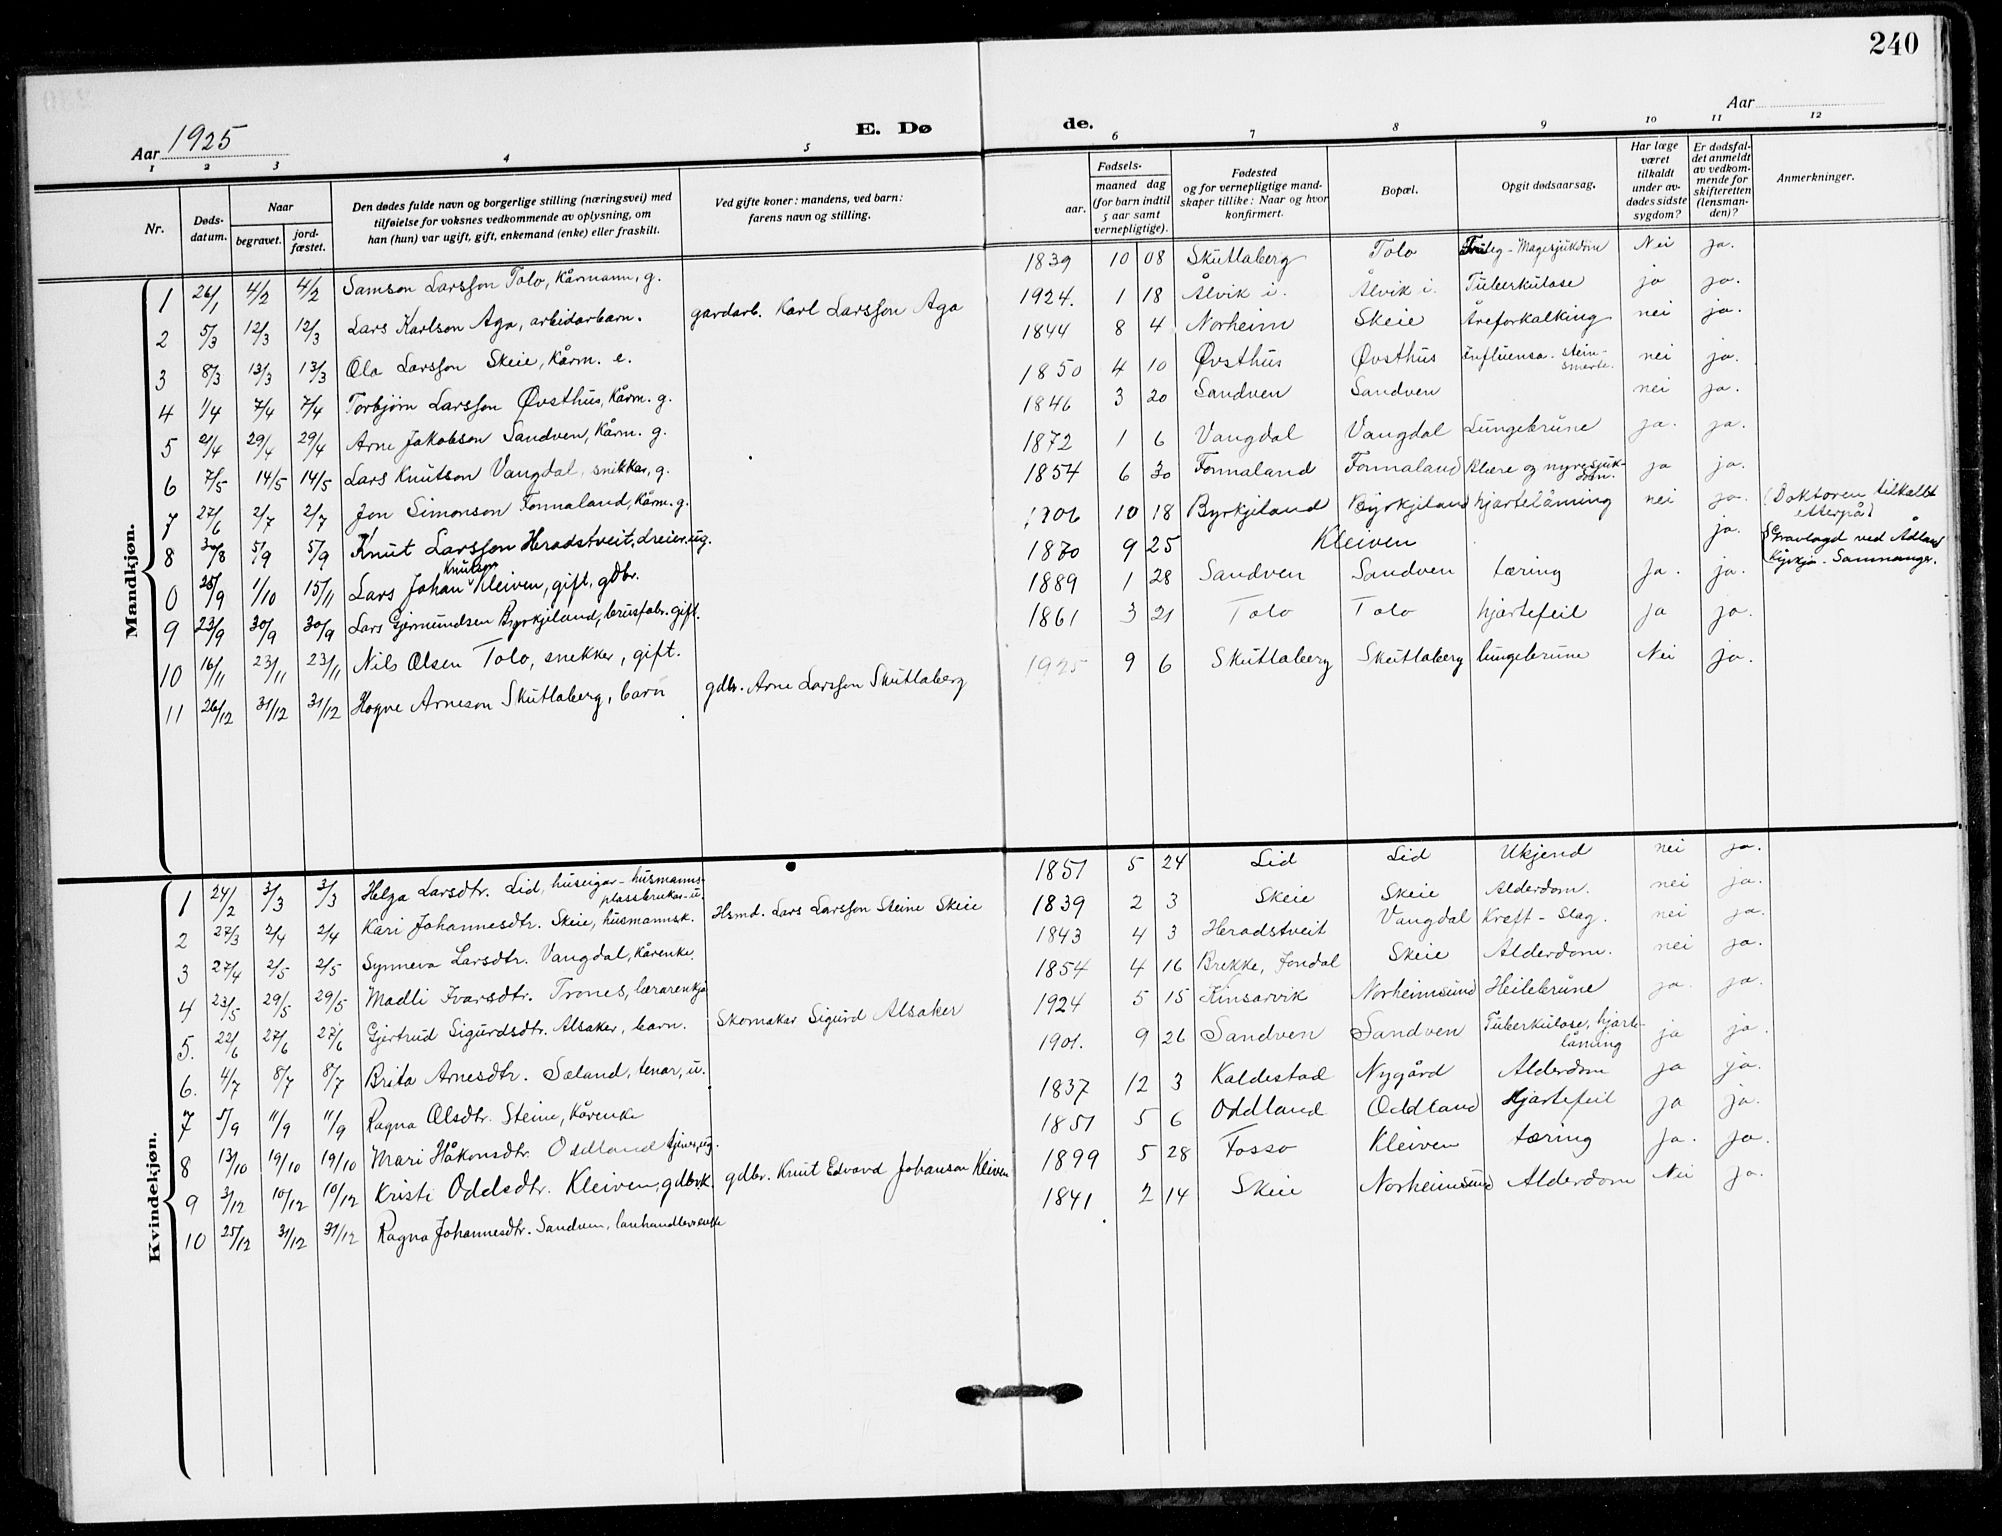 240
Aar 1925
E. Dø
de.
Aar
1 2 3 4 5 6 7 8 9 10 11 12
Nr.
Døds-
datum.
Naar
begravet.
jord-
fæstet.
Den dødes fulde navn og borgerlige stilling (næringsvei) med
tilføielse for voksnes vedkommende av oplysning, om
han (hun) var ugift, gift, enkemand (enke) eller fraskilt.
Ved gifte koner: mandens, ved barn:
farens navn og stilling.
Fødsels-
aar.
maaned dag
(for barn indtil
5 aar samt
vernepligtige).
Fødested
og for vernepligtige mand-
skaper tillike: Naar og hvor
konfirmert.
Bopæl.
Opgit dødsaarsag.
Har læge
været
tilkaldt
under av-
dødes sidste
sygdom?
Er dødsfal-
det anmeldt
av vedkom-
mende for
skifteretten
(lensman-
den)?
Anmerkninger.
Mandkjøn.
1 26/1 4/2 4/2 Samson Larsson Tolo, Kårmann, g. 1839 10 08 Skutlaberg Tolo Magesjukdom Nei ja.
2 5/3 12/3 12/3 Lars Karlson Aga, arbidarbarn. gardarb. Karl Larsson Aga 1924. 1 18 Ålvik i. Ålvik i. Tuberkulose ja ja.
3 8/3 13/3 13/3 Ola Larsson Skeie, Kårm. e. 1844 8 4 Norheim Skeie Åreforkalking nei ja.
4 1/4 7/4 7/4 Torbjørn Larsson Øvsthus, Kårm. g. 1850 4 10 Øvsthus Øvsthus Influensa. stein-
smerte. nei ja.
5 21/4 29/4 29/4 Arne Jakobson Sandven, Kårm. g. 1846 3 20 Sandven Sandven nei ja.
6 7/5 14/5 14/5 Lars Knutson Vangdal, snikkar, g. 1872 1 6 Vangdal Vangdal Lungebrune ja. ja.
7 27/6 2/7 2/7 Jon Simonson Fonnaland, Kårm. g. 1854 6 30 Fonnaland Fonnaland Blære og nyresjuk-
dom. ja ja.
8 30/8 5/9 5/9 Knut Larsson Heradstveit, dreier, ug. 1906 10 18 Byrkjeland Byrkjeland hjartelåming nei ja. (Doktoren tilkallt
etterpå)
0 25/9 1/10 15/11 Lars Johan Knutson Kleiven, gift, gdbr. 1870 9 25 Kleiven ja. (Gravlagd ved Ådland
Kyrkja - Samnanger.
9 23/9 30/9 30/9 Lars Gjermundsen Byrkjeland, brusfabr. gift. 1889 1 28 Sandven Sandven tæring Ja. ja.
10 16/11 23/11 23/11 Nils Olsen Tolo, snekker, gift. 1861 3 21 Tolo Tolo hjartefeil ja ja.
11 26/12 31/12 31/12 Hogne Arneson Skutlaberg, barn gdbr. Arne Larsson Skutlaberg 1925 9 6 Skutlaberg Skutlaberg lungebrune Nei ja.
Kvindekjøn.
1 24/2 3/3 3/3 Helga Larsdtr. Lid, huseigar - husmanns-
plassbrukar - u. 1851 5 24 Lid Lid Ukjend nei ja.
2 27/3 2/4 2/4 Kari Johannesdtr. Skeie, husmannsk. Hsmd. Lars Larsson Steine Skeie 1839 2 3 Skeie Skeie Alderdom. nei ja.
3 27/4 2/5 2/5 Synneva Larsdtr. Vangdal, Kårenke. 1843 4 3 Heradstveit Vangdal Kreft - Slag. nei ja.
4 23/5 29/5 29/5 Madli Ivarsdtr. Trones, lærarenkja 1854 4 16 Brekke, Jondal Skeie Alderdom. nei ja.
5. 22/6 27/6 27/6 Gjertrud Sigurdsdtr. Alsaker, barn. Skomakar Sigurd Alsaker 1924 5 15 Kinsarvik Norheimsund Heilebrune ja. ja.
6. 4/7 8/7 8/7 Brita Arnesdtr. Sæland, tenar, u. 1901. 9 26 Sandven Sandven Tuberkulose, hjarte-
låming ja ja.
7 5/9 11/9 11/9 Ragna Olsdtr. Steine, Kårenke 1837 12 3 Kaldestad Nygård Alderdom ja ja.
8 13/10 19/10 19/10 Mari Håkonsdtr. Oddland tjener, ug. 1851 5 6 Oddland Oddland Hjartefeil ja ja.
9 3/12 10/12 10/12 Kristi Oddsdtr. Kleiven, gdbrk. gdbr. Knut Edvard Johanson Kleiven 1899 5 28 Fosso Kleiven tæring Ja. ja.
10 25/12 31/12 31/12 Ragna Johannesdtr. Sandven, lanhandlerenke 1841 2 14 Skeie Norheimsund Alderdom Nei ja.